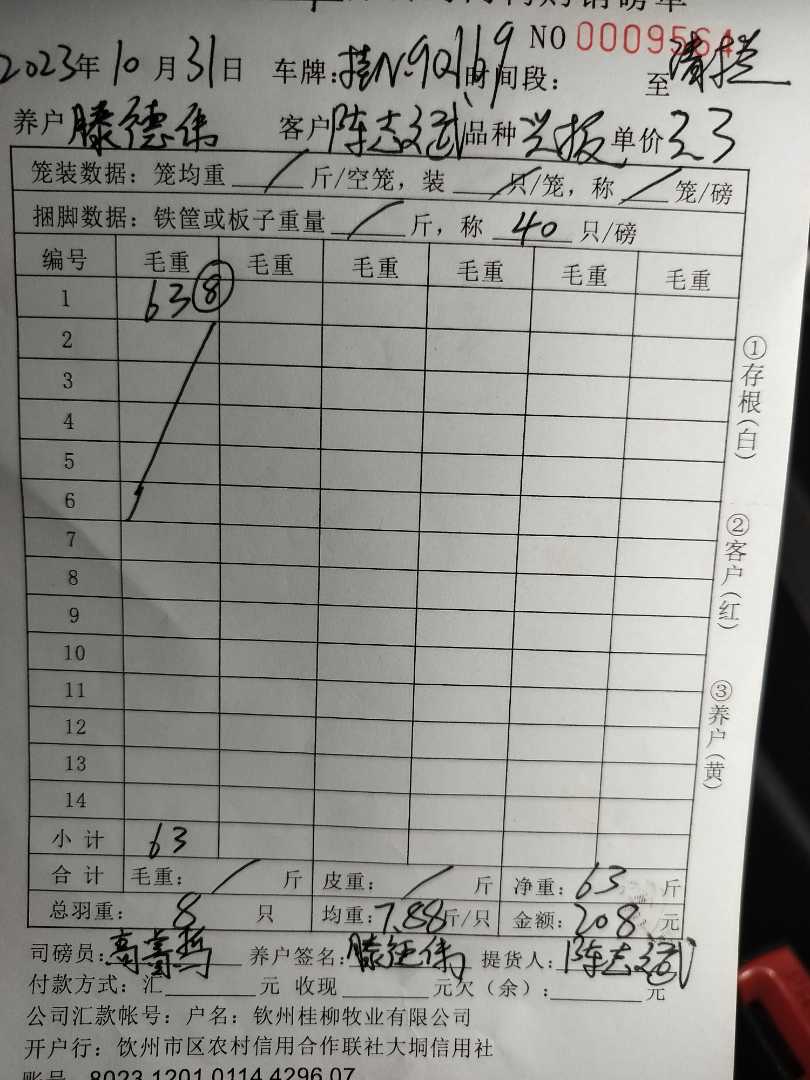 NO 0009564
2023年10月31日 车牌:桂N·9Q169 时间段: 至 清栏
养户 滕德伟 客户 陈志斌 品种 单价 3.3
笼装数据:笼均重 / 斤/空笼,装 / 只/笼,称 / 笼/磅
捆脚数据:铁筐或板子重量 / 斤,称 40 只/磅
编号 毛重 毛重 毛重 毛重 毛重 毛重
1 63 ⑧
2
3
4
5
6
7
8
9
10
11
12
13
14
小计 63
合计 毛重: / 斤 皮重: / 斤 净重:63 斤
总羽重: 8 只 均重:7.88斤/只 金额:208元
司磅员: 养户签名:滕德伟 提货人:陈志斌
付款方式:汇 元 收现 元欠(余): 元
公司汇款帐号:户名:钦州桂柳牧业有限公司
开户行:饮州市区农村信用合作联社大垌信用社
账号 8023 1201 0114 4296 07
①存根(白)
②客户(红)
③养户(黄)